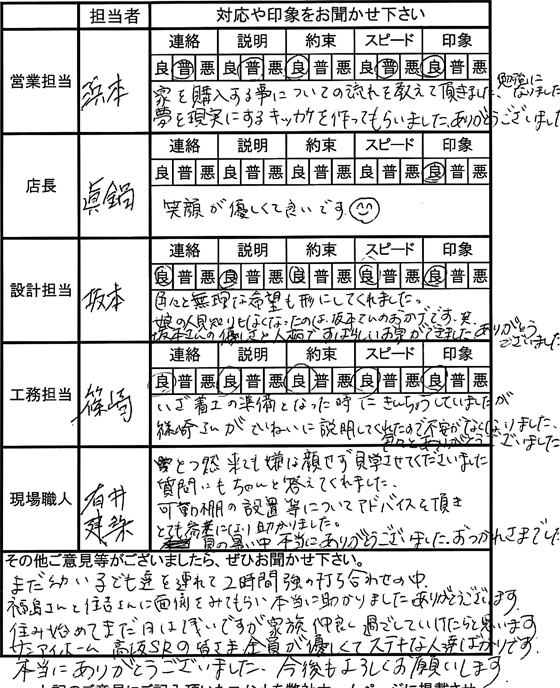 担当者 対応や印象をお聞かせ下さい
営業担当 浜本
連絡 説明 約束 スピード 印象
良 普 悪 良 普 悪 良 普 悪 良 普 悪 良 普 悪
家を購入する事についての流れを教えて頂きました、勉強になりました
夢を現実にするキッカケを作ってもらいました、ありがとうございました
店長 眞鍋
連絡 説明 約束 スピード 印象
良 普 悪 良 普 悪 良 普 悪 良 普 悪 良 普 悪
笑顔が優しくて良いです
設計担当 坂本
連絡 説明 約束 スピード 印象
良 普 悪 良 普 悪 良 普 悪 良 普 悪 良 普 悪
色々と無理な希望も形にしてくれました。
娘の人見知りもなくなったのは、坂本さんのおかげです。
坂本さんの優しさと人柄ですばらしいお家ができました ありがとうございました
工務担当 篠崎
連絡 説明 約束 スピード 印象
良 普 悪 良 普 悪 良 普 悪 良 普 悪 良 普 悪
いざ着工の準備となった時にきんちょうしていましたが
篠崎さんがていねいに説明してくれたので不安がなくなりました、
色々とありがとうございました
現場職人 有井建築
とつ然来ても嫌な顔せず見学させてくださいました
質問にもちゃんと答えてくれました、
可動棚の設置等についてアドバイスを頂き
とても参考になり助かりました。
夏の暑い中本当にありがとうございました、おつかれさまでした
その他ご意見等がございましたら、ぜひお聞かせ下さい。
まだ幼い子ども達を連れて2時間強の打ち合わせの中、
福島さんと住吉さんに面倒をみてもらい本当に助かりましたありがとうございます
住み始めてまだ日は浅いですが家族仲良く過ごしていけたらと思います
サンアイホーム 高坂SRの皆さま全員が優しくてステキな人達ばかりです
本当にありがとうございました、今後もよろしくお願いします